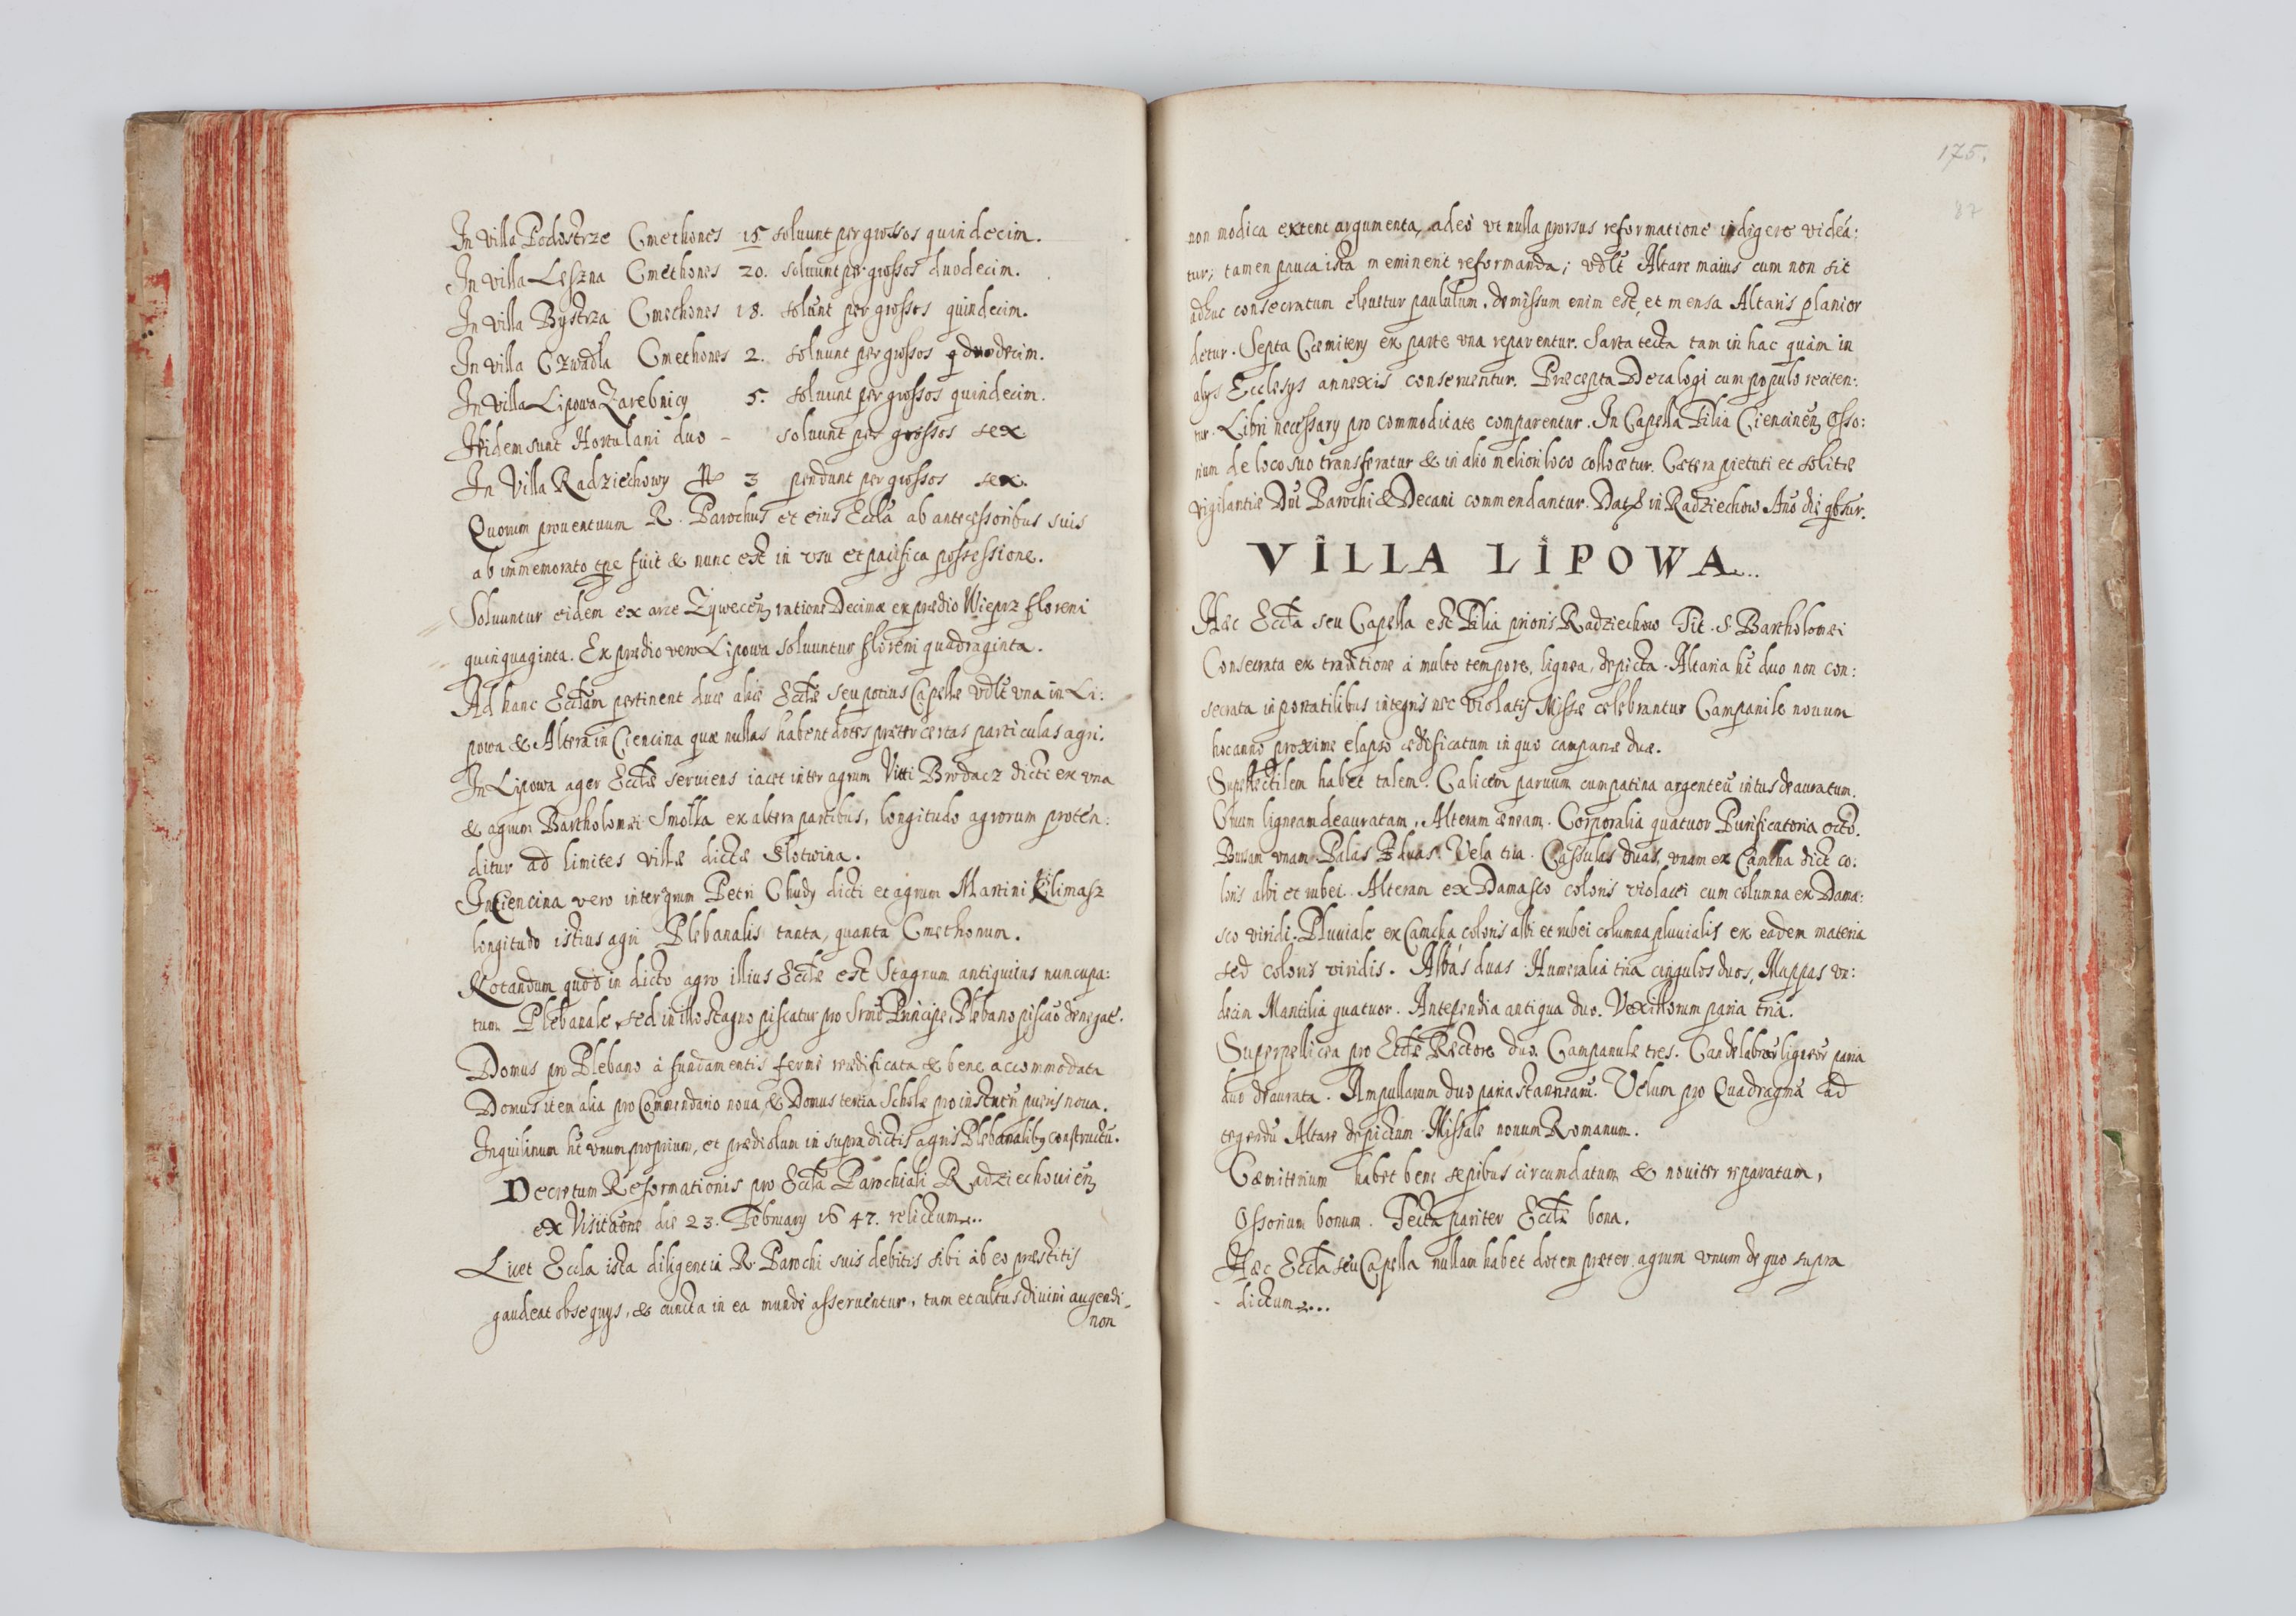 In Villa Podostrze Cmethones 15 soluunt per grossos quindecim.
In villa Leszna Cmethones 20. soluunt per grossos duodecim.
In villa Bystrza Cmethones 18. solunt per grossos quindecim.
In villa Czwadla Cmethones 2. soluunt per grossos duodecim.
In Villa Lipowa Zarebnicy 5. soluunt per grossos quindecim.
Ibidem sunt Hortulani duo - soluunt per grossos sex
In Villa Radziechowy 3 pendunt per grossos sex.
Quorum prouentuum R. Parochus et eius Eccla ab antecessoribus suis
ab immemorato tpe fuit & nunc est in vsu et pacifica possessione.
Soluuntur eidem ex arce Zywecen ratione Decimæ ex prædio Wieprz floreni
quinquaginta. Ex prædio vero Lipowa soluuntur floreni quadraginta.
Ad hanc Ecclam pertinent duæ aliæ Ecclæ seu potius Capellæ vdlt vna in Li:
powa & Altera in Ciencina quæ nullas habent dotes præter certas particulas agri.
In Lipowa ager Ecclæ seruiens iacet inter agrum Vitti Brodacz dicti ex vna
& agrum Bartholomæi Smolka ex altera partibus, longitudo agrorum proten:
ditur ad limites villæ dictæ Slotwina.
In Ciencina vero inter grum Petri Chudy dicti et agrum Martini Klimasz
longitudo istius agri Plebanalis tanta, quanta Cmethonum.
Notandum quod in dicto agro illius Ecclæ est Stagnum antiquitus nuncupa:
tum Plebanale, sed in illo stagno piscatur pro Srmo Principe, Plebano piscao denegat.
Domus pro Plebano à fundamentis ferme reædificata & bene accommodata
Domus item alia pro Commendario noua, & Domus tertia Scholæ pro instruen pueris noua.
Inquilinum ht vnum proprium, et prædiolum in supradictis agris Plebanalibq constructu.
Decretum Reformationis pro Eccla Parochiali Radziechouien
ex Visitaone die 23. February 1647. relictum...
Licet Eccla ista diligentia R. Parochi suis debitis sibi ab eo præstitis
gaudeat obsequys, & cuncta in ea munde asseruentur, tum et cultus diuini augendi
non
175.
87
non modica extent argumenta, adeo vt nulla prorsus reformatione indigere videa:
tur; tamen pauca ista meminerit reformanda; vdlt Altare maius cum non sit
adhuc consecratum eleuetur paululum, demissum enim est, et mensa Altaris planior
detur. Septa Cœmitery ex parte vna reparentur. Sarta tecta tam in hac quàm in
alys Ecclesys annexis conseruentur. Præcepta Decalogi cum populo reciten:
tur. Libri necessary pro commoditate comparentur. In Capella Filia Ciencinen Osso:
rium de loco suo transferatur & in alio meliori loco collocetur. Cætera pietati et solitæ
vigilantiæ Dni Parochi & Decani commendantur. Dat in Radziechow Ano die qbsur.
VILLA LIPOWA...
Hæc Eccla seu Capella est Filia prioris Radziechow Tit. S. Bartholomæi
Consecrata ex traditione à multo tempore, lignea, depicta. Altaria ht duo non con:
secrata in portatilibus integris nec violatis Missæ celebrantur Campanile nouum
hoc anno proxime elapso ædificatum in quo campanæ duæ.
Supellectilem habet talem. Calicem paruum cum patina argenteu intus deauratum.
Crucem ligneam deauratam, Alteram æneam. Corporalia quatuor Purificatoria octo.
Bursam vnam. Palas duas. Vela tria. Cassulas duas, vnam ex Camcha dict co:
loris albi et rubei. Alteram ex Damasco coloris violacei cum columna ex Dama:
sco viridi. Pluuiale ex Camcha coloris albi et rubei columna pluuialis ex eadem materia
sed coloris viridis. Albas duas. Humeralia tria cingulos duos, Mappas vn:
decim Mantilia quatuor. Antependia antiqua duo. Vexillorum paria tria.
Superpellicea pro Ecclæ Rectore duo. Campanulæ tres. Candelabrorum ligneor paria
duo deaurata. Ampullarum duo paria stannearu. Velum pro Quadragma ad
tegendu Altare depictum. Missale nouum Romanum.
Cæmiterium habet bene sepibus circumdatum & nouiter reparatum,
Ossorium bonum. Tecta pariter Ecclæ bona.
Hæc Eccla seu Capella nullam habet dotem præter agrum vnum de quo supra
dictum...